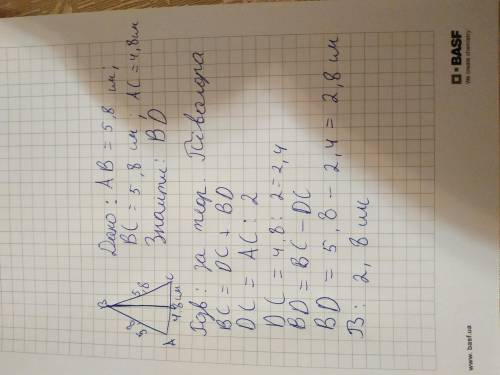 Дано: AB = 5,8 см;
BC = 5,8 см; AC = 4,8 см
Знайти: BD
B
5,8
5,8
A
4,8 см
C
за теор. Піфагора
BC = DC + BD
DC = AC : 2
DC = 4,8 : 2 = 2,4
BD = BC - DC
BD = 5,8 - 2,4 = 2,8 см
В: 2,8 см
BASF
We create chemistry
www.basf.ua